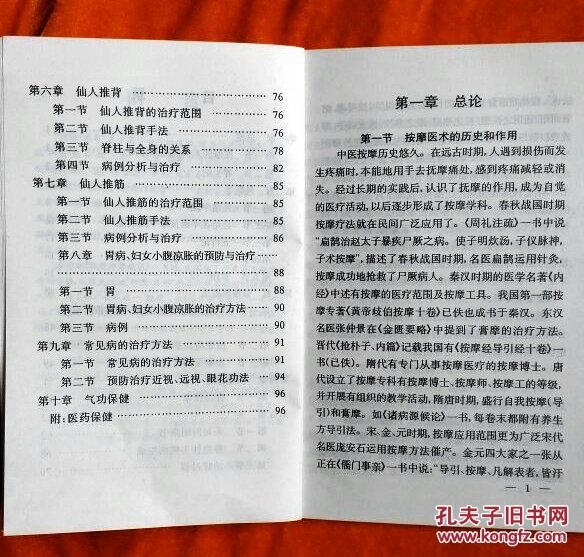 第六章 仙人推背 ………………………… 76
第一节 仙人推背的治疗范围 ………… 76
第二节 仙人推背手法 ………………… 76
第三节 脊柱与全身的关系 …………… 78
第四节 病例分析与治疗 ……………… 82
第七章 仙人推筋 ………………………… 85
第一节 仙人推筋的治疗范围 ………… 85
第二节 仙人推筋手法 ………………… 85
第三节 病例分析与治疗 ……………… 86
第八章 胃病、妇女小腹凉胀的预防与治疗 ……
………………………………………… 88
第一节 胃 ……………………………… 88
第二节 胃病、妇女小腹凉胀的治疗方法 … 90
第三节 病例 …………………………… 90
第九章 常见病的治疗方法 ……………… 91
第一节 常见病的治疗方法 …………… 91
第二节 预防治疗近视、远视、眼花功法 … 94
第十章 气功保健 ………………………… 96
附:医药保健 ……………………………… 96
第一章 总论
第一节 按摩医术的历史和作用
中医按摩历史悠久。在远古时期,人遇到损伤而发
生疼痛时,本能地用手去抚摩痛处,感到疼痛减轻或消
失。经过长期的实践后,认识了抚摩的作用,成为自觉
的医疗活动,以后逐步形成了按摩学科。春秋战国时期
按摩疗法就在民间广泛应用了。《周礼注疏》一书中说
“扁鹊治赵太子暴疾尸厥之病。使子明炊汤,子仪脉神,
子术按摩”,描述了春秋战国时期,名医扁鹊运用针灸、
按摩成功地抢救了尸厥病人。秦汉时期的医学名著《内
经》中述有按摩的医疗范围及按摩工具。我国第一部按
摩专著《黄帝歧伯按摩十卷》已佚也成书于秦汉。东汉
名医张仲景在《金匮要略》中提到了膏摩的治疗方法。
晋代《抢朴子、内篇》记载我国有《按摩经导引经十卷》一
书(已佚)。隋代有专门从事按摩医疗的按摩博士。唐
代设立了按摩专科有按摩博士、按摩师、按摩工的等级,
并开展有组织的教学活动,隋唐时期,盛行自我按摩(导
引)和膏摩。如《诸病源候论》一书,每卷末都附有养生
方导引法。宋、金、元时期,按摩应用范围更为广泛宋代
名医庞安石运用按摩方法催产。金元四大家之一张从
正在《儒门事亲》一书中说:“导引、按摩、凡解表者,皆汗
— 1 —
孔夫子旧书网
www.kongfz.com